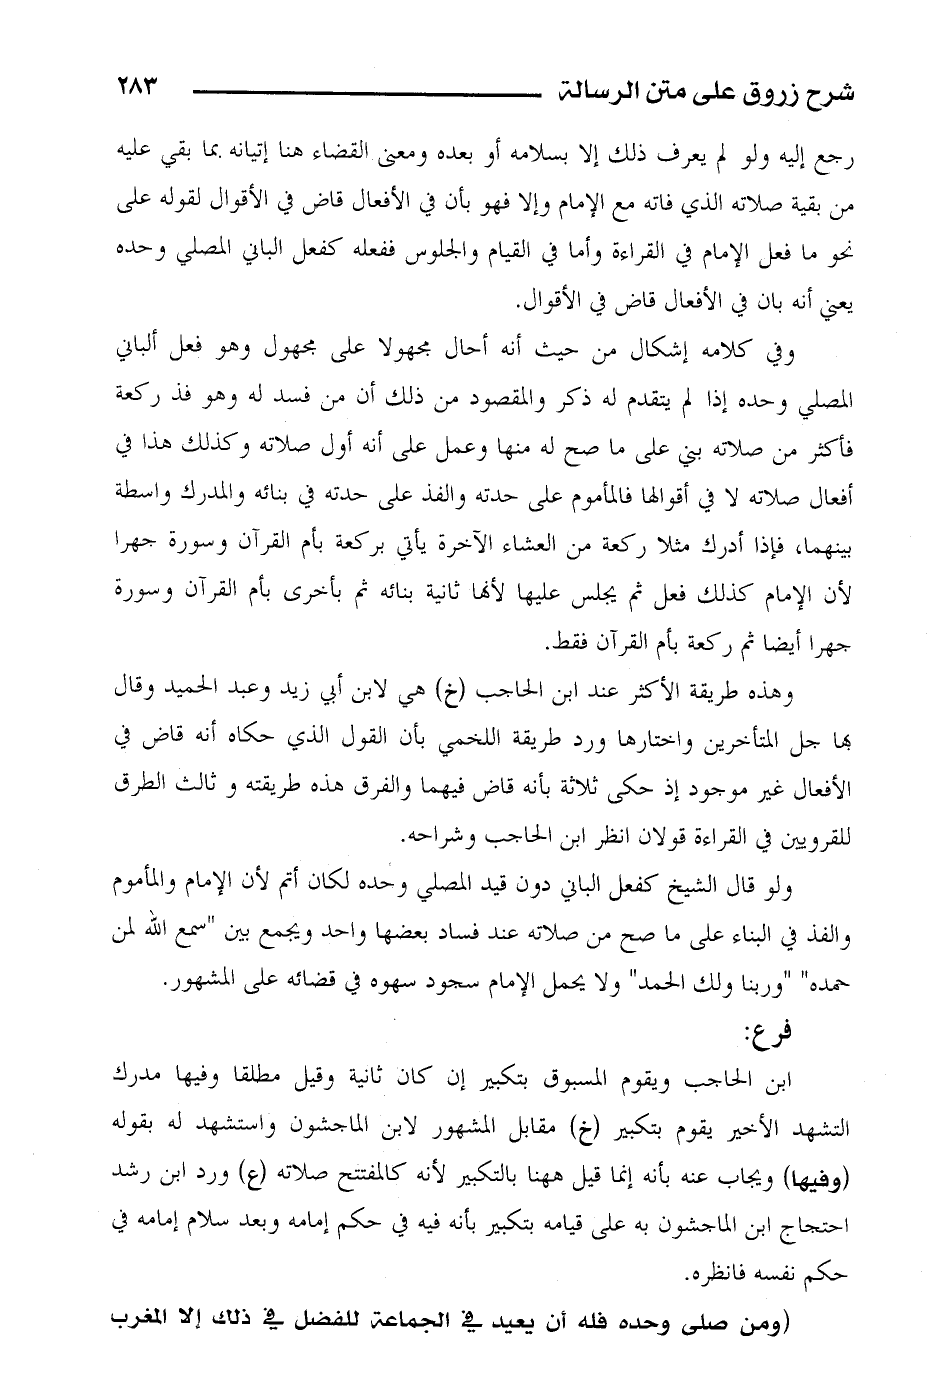 شرح زروق على متن الرسالة ٢٨٣
رجع إليه ولو لم يعرف ذلك إلا بسلامه أو بعده ومعنى القضاء هنا إتيانه بما بقي عليه
من بقية صلاته الذي فاته مع الإمام وإلا فهو بأن في الأفعال قاض في الأقوال لقوله على
نحو ما فعل الإمام في القراءة وأما في القيام والجلوس ففعله كفعل الباني المصلي وحده
يعني أنه بان في الأفعال قاض في الأقوال.
وفي كلامه إشكال من حيث أنه أحال مجهولا على مجهول وهو فعل ألباني
المصلي وحده إذا لم يتقدم له ذكر والمقصود من ذلك أن من فسد له وهو فذ ركعة
فأكثر من صلاته بنى على ما صح له منها وعمل على أنه أول صلاته وكذلك هذا في
أفعال صلاته لا في أقوالها فالمأموم على حدته والفذ على حدته في بنائه والمدرك واسطة
بينهما، فإذا أدرك مثلا ركعة من العشاء الآخرة يأتي بركعة بأم القرآن وسورة جهرا
لأن الإمام كذلك فعل ثم يجلس عليها لأنها ثانية بنائه ثم بأخرى بأم القرآن وسورة
جهرا أيضا ثم ركعة بأم القرآن فقط.
وهذه طريقة الأكثر عند ابن الحاجب (خ) هي لابن أبي زيد وعبد الحميد وقال
بها جل المتأخرين واختارها ورد طريقة اللخمي بأن القول الذي حكاه أنه قاض في
الأفعال غير موجود إذ حكى ثلاثة بأنه قاض فيهما والفرق هذه طريقته و ثالث الطرق
للقرويين في القراءة قولان انظر ابن الحاجب وشراحه.
ولو قال الشيخ كفعل الباني دون قيد المصلي وحده لكان أتم لأن الإمام والمأموم
والفذ في البناء على ما صح من صلاته عند فساد بعضها واحد ويجمع بين "سمع الله لمن
حمده" "وربنا ولك الحمد" ولا يحمل الإمام سجود سهوه في قضائه على المشهور.
فرع:
ابن الحاجب ويقوم المسبوق بتكبير إن كان ثانية وقيل مطلقا وفيها مدرك
التشهد الأخير يقوم بتكبير (خ) مقابل المشهور لابن الماجشون واستشهد له بقوله
(وفيها) ويجاب عنه بأنه إنما قيل ههنا بالتكبير لأنه كالمفتتح صلاته (ع) ورد ابن رشد
احتجاج ابن الماجشون به على قيامه بتكبير بأنه فيه في حكم إمامه وبعد سلام إمامه في
حكم نفسه فانظره.
(ومن صلى وحده فله أن يعيد في الجماعة للفضل في ذلك إلا المغرب